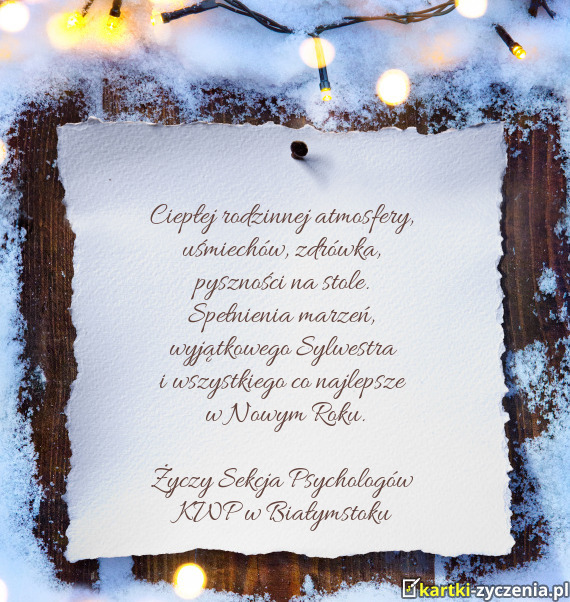 Ciepłej rodzinnej atmosfery,
uśmiechów, zdrówka,
pyszności na stole.
Spełnienia marzeń,
wyjątkowego Sylwestra
i wszystkiego co najlepsze
w Nowym Roku.
Życzy Sekcja Psychologów
KWP w Białymstoku
kartki-zyczenia.pl